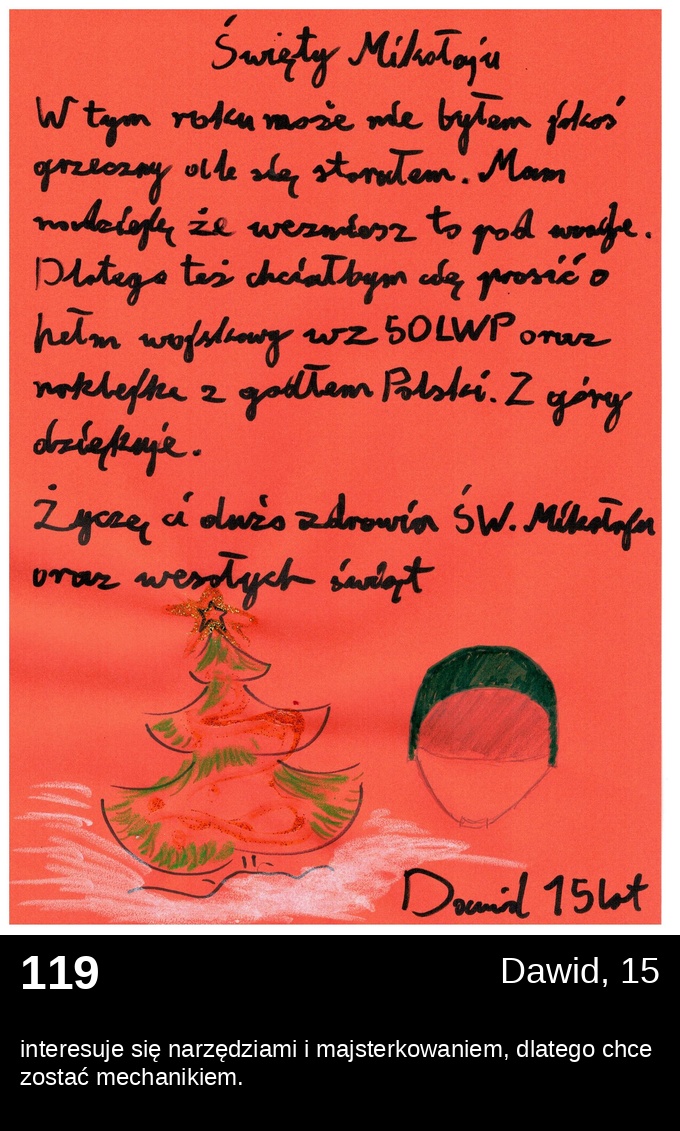 Święty Mikołaju
W tym roku może nie byłem jakoś
grzeczny ale się starałem. Mam
nadzieję że wezmiesz to pod uwagę.
Dlatego też chciałbym cię prosić o
hełm wojskowy wz 50LWP oraz
naklejkę z godłem Polski. Z góry
dziękuje.
Życzę ci dużo zdrowia ŚW. Mikołaju
oraz wesołych świąt
Dawid 15lat
119
Dawid, 15
interesuje się narzędziami i majsterkowaniem, dlatego chce
zostać mechanikiem.